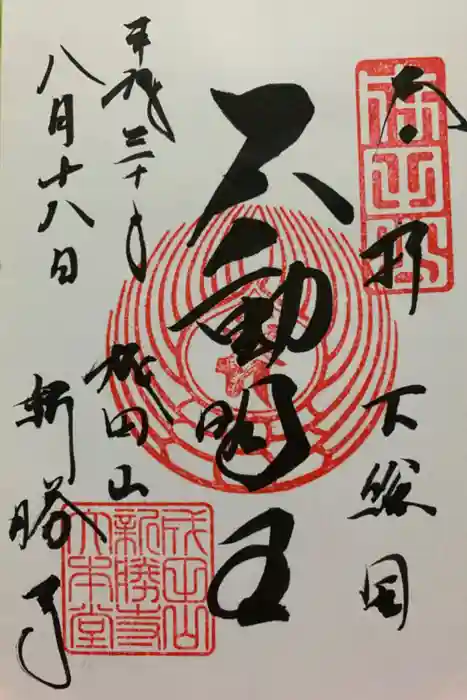 奉拝
下総国
不動明王
成田山
新勝寺
平成三十年
八月十八日
成田山
成田山
新勝寺
大本堂